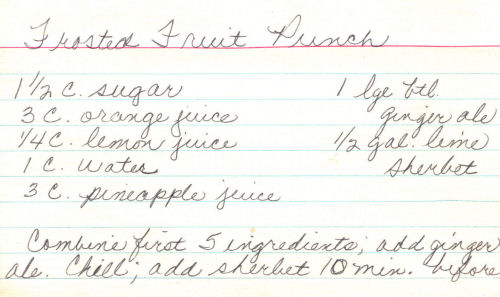 Frosted Fruit Punch
1 1/2 c. sugar
3 c. orange juice
1/4 c. lemon juice
1 c. water
3 c. pineapple juice
1 lge btl.
ginger ale
1/2 gal. lime
sherbet
Combine first 5 ingredients; add ginger
ale. Chill; add sherbet 10 min. before